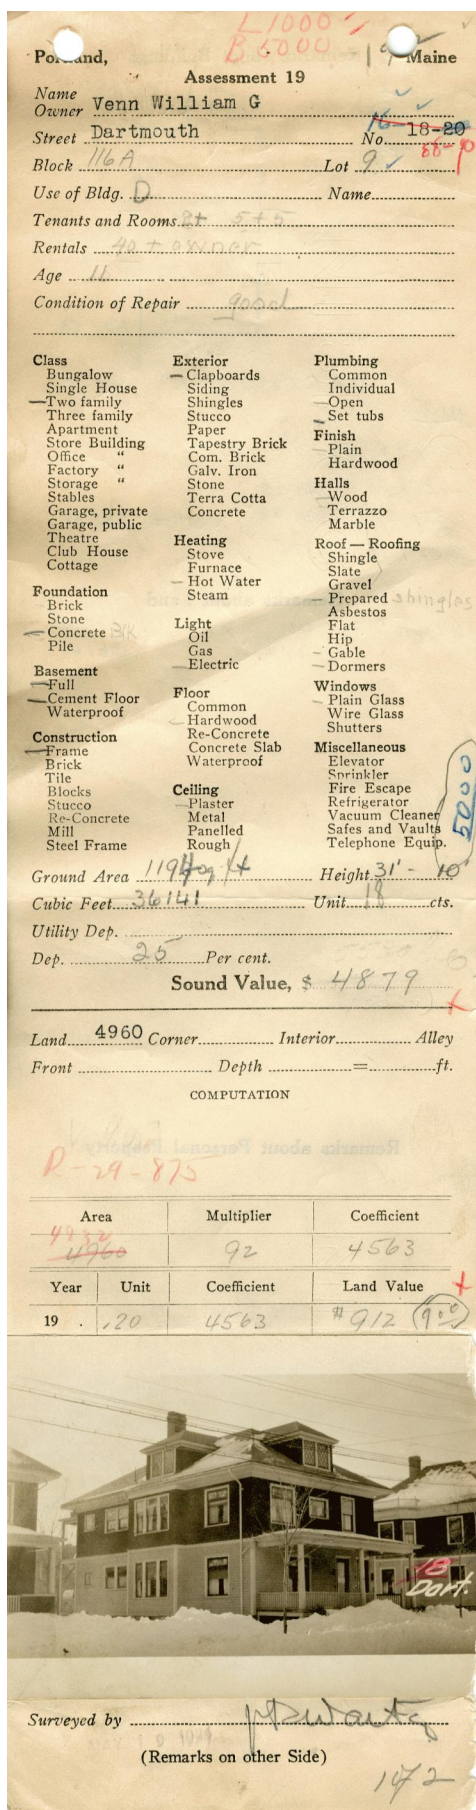 L 1000
B 5000
Portland, 19 Maine
Assessment 19
Name
Owner Venn William G
Street Dartmouth No. 18-20
88-90
Block 116A Lot 9
Use of Bldg. D Name
Tenants and Rooms 2+ 5+5
Rentals 40 + owner
Age 11
Condition of Repair good
Class
Bungalow
Single House
Two family
Three family
Apartment
Store Building
Office "
Factory "
Storage "
Stables
Garage, private
Garage, public
Theatre
Club House
Cottage
Foundation
Brick
Stone
Concrete Brk
Pile
Basement
Full
Cement Floor
Waterproof
Construction
Frame
Brick
Tile
Blocks
Stucco
Re-Concrete
Mill
Steel Frame
Exterior
Clapboards
Siding
Shingles
Stucco
Paper
Tapestry Brick
Com. Brick
Galv. Iron
Stone
Terra Cotta
Concrete
Heating
Stove
Furnace
Hot Water
Steam
Light
Oil
Gas
Electric
Floor
Common
Hardwood
Re-Concrete
Concrete Slab
Waterproof
Ceiling
Plaster
Metal
Panelled
Rough
Plumbing
Common
Individual
Open
Set tubs
Finish
Plain
Hardwood
Halls
Wood
Terrazzo
Marble
Roof — Roofing
Shingle
Slate
Gravel
Prepared shingles
Asbestos
Flat
Hip
Gable
Dormers
Windows
Plain Glass
Wire Glass
Shutters
Miscellaneous
Elevator
Sprinkler
Fire Escape
Refrigerator
Vacuum Cleaner
Safes and Vaults
Telephone Equip.
5000
Ground Area 1194 Height 31' - 10"
Cubic Feet 36141 Unit 18 cts.
Utility Dep.
Dep. 25 Per cent.
Sound Value, $ 4879
Land 4960 Corner Interior Alley
Front Depth = ft.
COMPUTATION
R-29-875
Area Multiplier Coefficient
4932
4960 92 4563
Year Unit Coefficient Land Value
19 . .20 4563 # 912 900
18
Dart.
Surveyed by
(Remarks on other Side)
1472